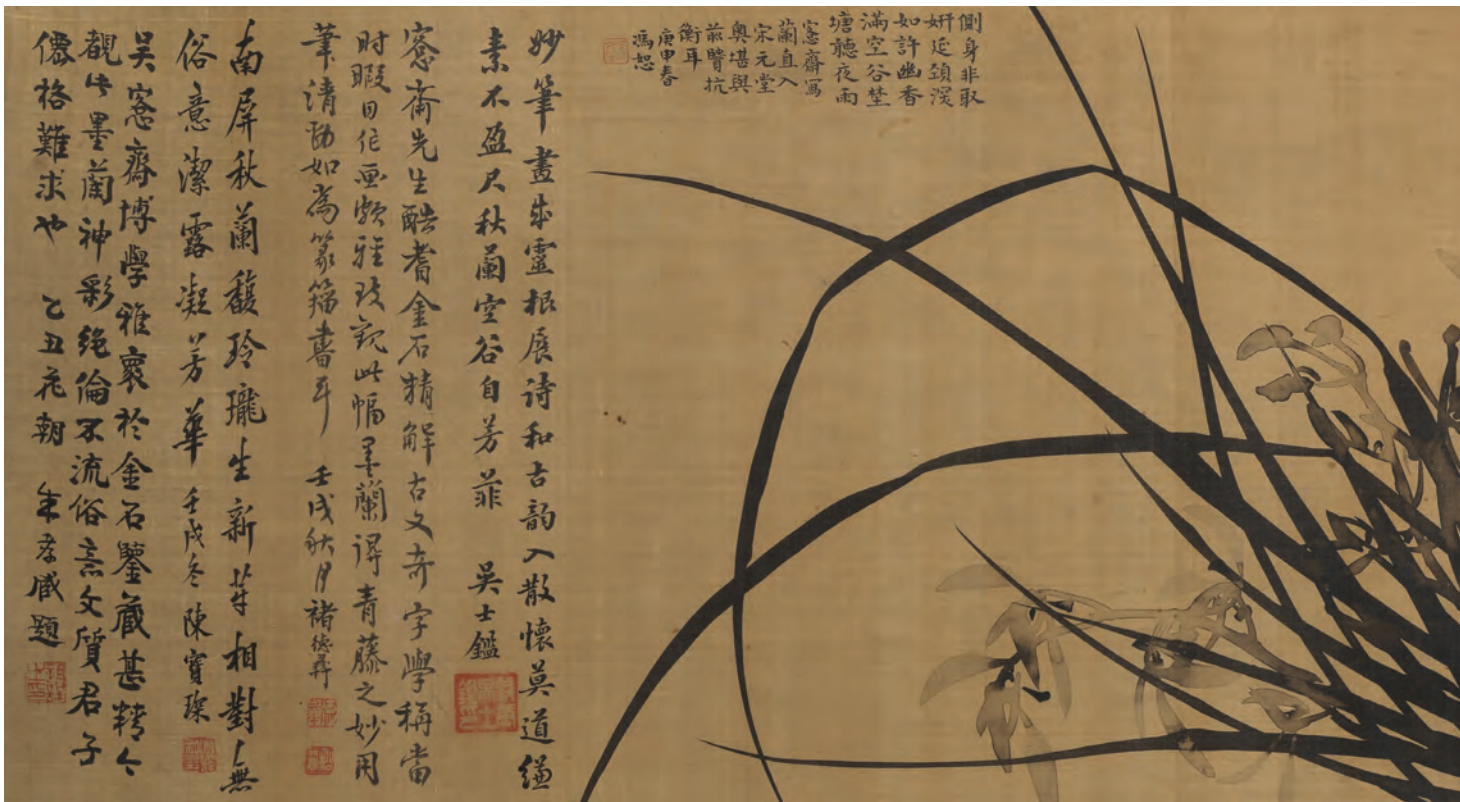 側身非取
妍延頸深
如許幽香
滿空谷埜
塘聽夜雨
愙齋寫
蘭直入
宋元堂
奧堪與
前賢抗
衡耳
庚申春
馮恕
妙筆畫成靈根展詩和古韵入散懷莫道縑
素不盈尺秋蘭空谷自芳菲 吳士鑑
愙齋先生酷耆金石精解古文奇字學稱當
时暇日作画頗雅致観此幅墨蘭得青藤之妙用
筆清勁如為篆籀書耳 壬戌秋月褚德彝
南屏秋蘭馥玲瓏生新芽相對無
俗意潔露凝芳華 壬戌冬陳寶琛
吳愙齋博學雅裒於金石鑒藏甚精今
覩此墨蘭神彩絶倫不流俗焘文質君子
僊格難求也 乙丑花朝 朱孝臧題